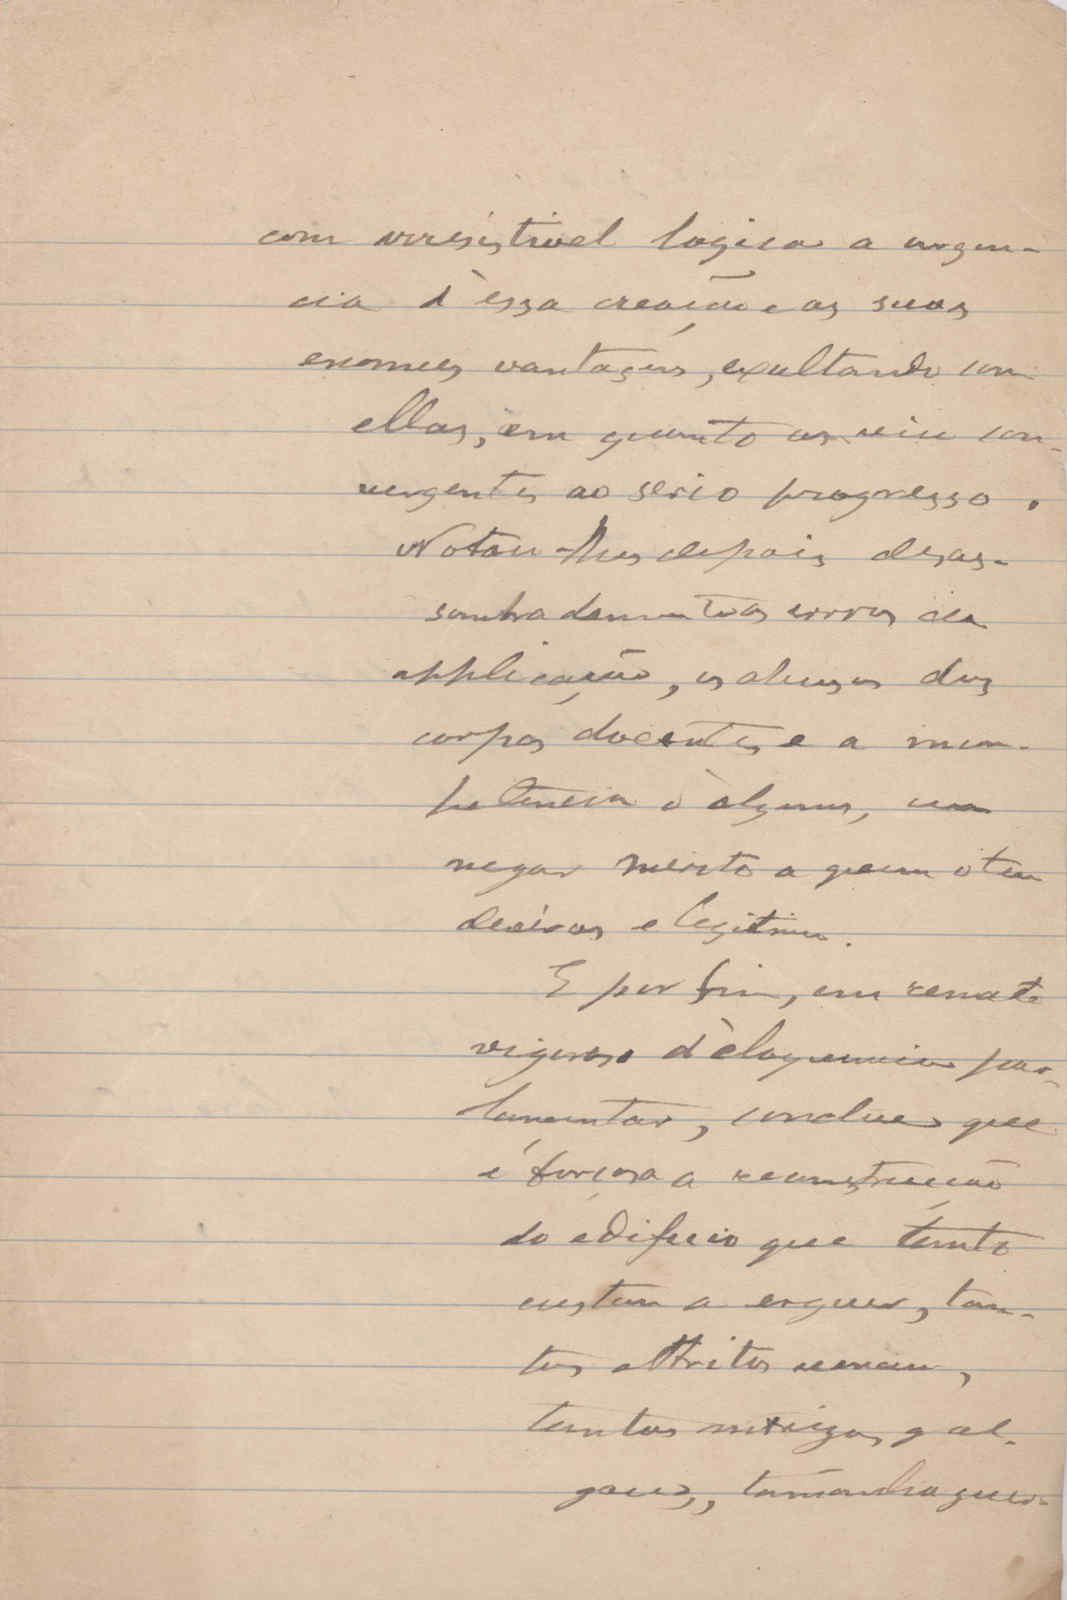 com irresistivel logica a urgen-
cia d'essa creação e as suas
enormes vantagens, exultando com
ellas, em quanto as viu con-
vergentes ao serio progresso.
Notou-lhes depois desas-
sombradamente os erros da
applicação, os abusos dos
corpos docentes e a incom-
petencia d'alguns, sem
negar merito a quem o tem
deveras e legitimo.
E por fim, em remate
vigoroso d'eloquencia par-
lamentar, conclue que
é forçosa a reconstrucção
do edificio que tanto
custou a erguer, tan-
tos attritos venceu,
tantas intrigas gal-
gou, tamanha guer-